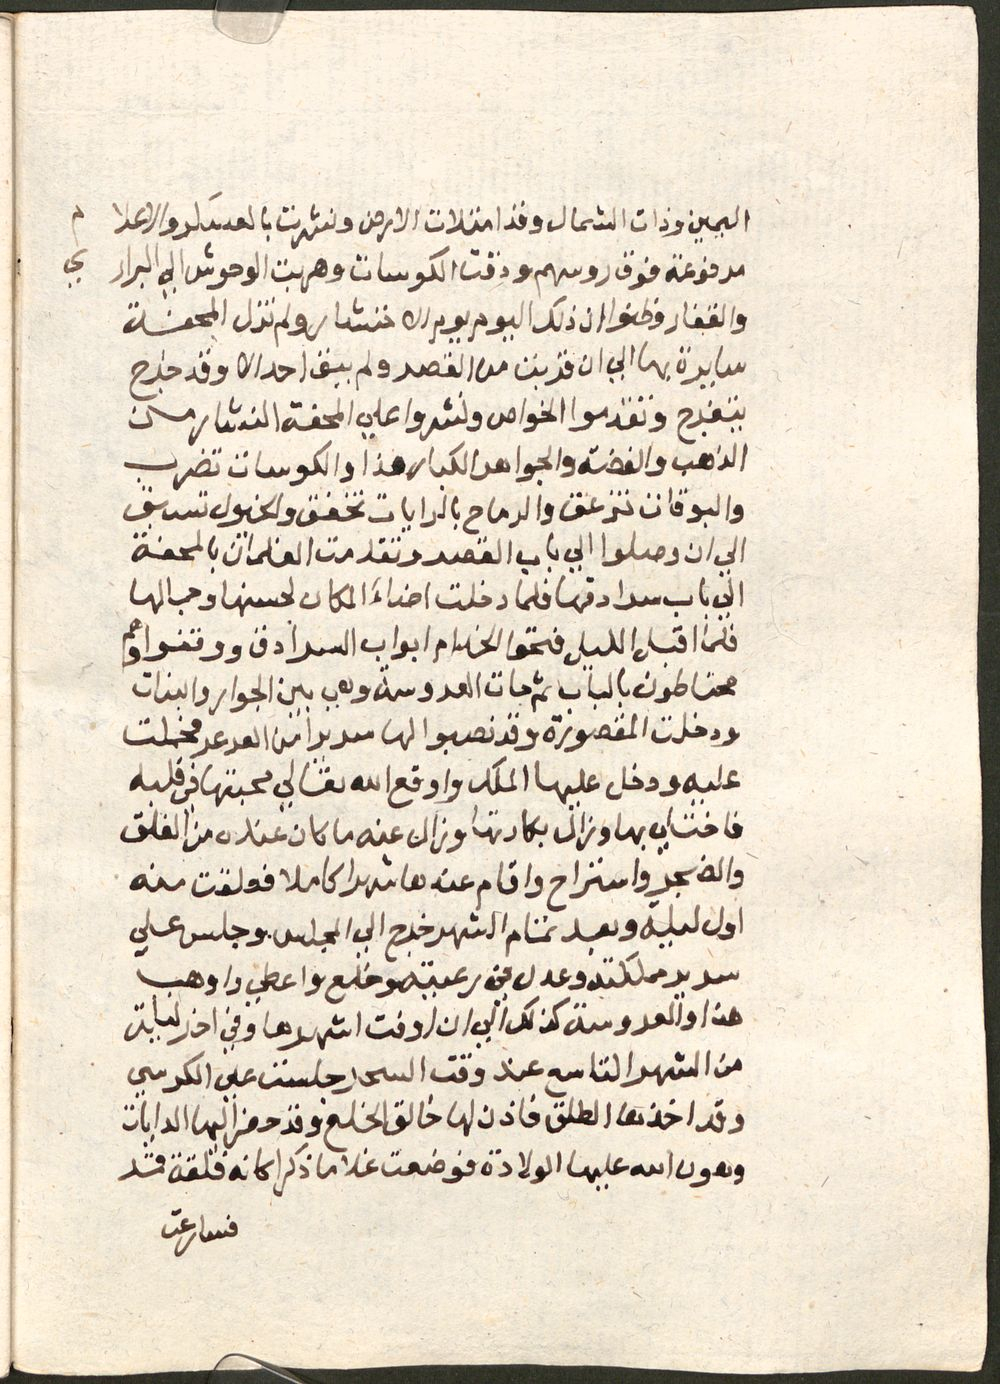 اليمين وذات الشمال وقد امتلات الارض ونشرت بالعسكر والاعلام
مرفوعة فوق روسهم ودقت الكوسات وهربت الوحوش الي البراري
والقفار وظنوا ان ذلك اليوم يوم الا ولم تزل المحفة
سايرة بها الي ان قربت من القصر ولم يبق احد الا وقد خرج
يتفرج وتقدموا الخواص ونشروا علي المحفة النثار من
الذهب والفضة والجواهر الكبار هذا والكوسات تضرب
والبوقات تزعق والرماح بالرايات تخفق والخيول تسبق
الي ان وصلوا الي باب القصر وتقدمت الغلمان بالمحفة
الي باب سرادقها فلما دخلت اضاء المكان لحسنها وجمالها
فلما اقبل الليل فتحوا الخدام ابواب السرادق ووقفوا وهم
محتاطون بالباب ثم جات العروسة وهي بين الجوار والبنات
ودخلت المقصورة وقد نصبوا لها سريرا من العرعر فجلست
عليه ودخل عليها الملك واوقع الله تعالي محبتها في قلبه
فاختلي بها وزال بكارتها وزال عنه ما كان عنده من القلق
والضجر واستراح واقام عندها شهرا كاملا فعلقت منه
اول ليلة وبعد تمام الشهر خرج الي المجلس وجلس علي
سرير مملكته وعدل في رعيته وخلع واعطي واوهب
هذا والعروسة كذلك الي ان اوفت اشهرها وفي اخر ليلة
من الشهر التاسع عند وقت السحر جلست علي الكرسي
وقد اخذها الطلق فاذن لها خالق الخلع وقد حضر اليها الدايات
وهون الله عليها الولادة فوضعت غلاما ذكرا كانه فلقة قمر
فسارعت